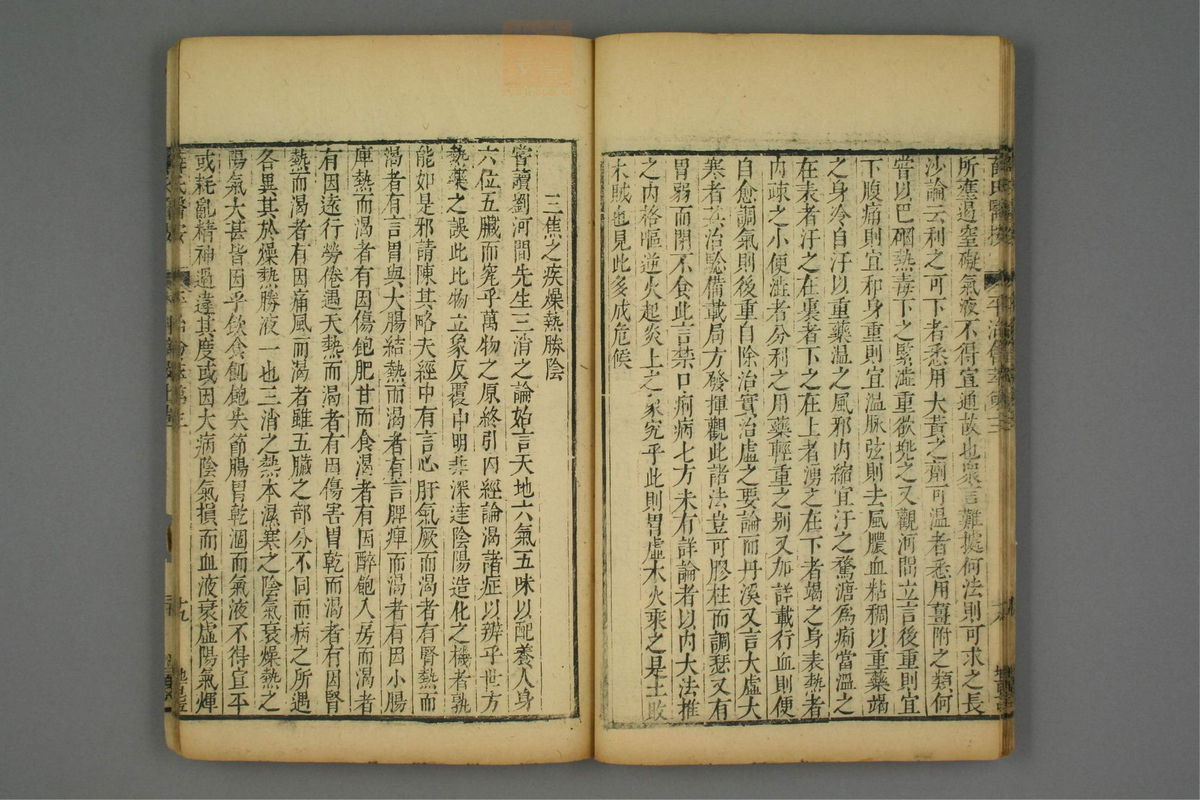 薛氏醫按
平治會萃卷三
所壅遏窒礙氣液不得宣通故也衆言難處何法則可求之長
沙論云利之可下者悉用大黃之劑可溫者悉用薑附之類何
嘗以巴硇熱毒下之緊澁重欲兠之又觀河間立言後重則宜
下腹痛則宜和身重則宜溫脉弦則去風膿血粘稠以重藥竭
之身冷自汗以重藥温之風邪内縮宜汗之鶩溏爲痢當溫之
在表者汗之在裏者下之在上者湧之在下者竭之身表熱者
内疎之小便澁者分利之用藥輕重之别又加詳載行血則便
自愈調氣則後重自除治實治虛之要論而丹溪又言大虛大
寒者其治驗備載局方發揮觀此諸法豈可膠柱而調瑟又有
胃弱而閉不食此言禁口痢病七方未有詳論者以内大法推
之内格嘔逆火起炎上之象究乎此則胃虛木火乘之是土敗
木賊也見此多成危候
三焦之疾燥熱勝陰
嘗讀劉河間先生三消之論始言天地六氣五味以配養人身
六位五臟而究乎萬物之原終引内經論渴諸症以辨乎世方
熱藥之誤此比物立象反覆申明非深達陰陽造化之機者孰
能如是邪請陳其略夫經中有言心肝氣厥而渴者有腎熱而
渴者有言胃與大腸結熱而渴者有言脾痺而渴者有因小腸
痺熱而渴者有因傷飽肥甘而食渴者有因醉飽入房而渴者
有因遠行勞倦遇天熱而渴者有因傷害胃乾而渴者有因腎
熱而渴者有因痛風而渴者雖五臟之部分不同而病之所遇
各異其於燥熱勝液一也三消之熱本濕寒之陰氣衰燥熱之
陽氣大甚皆因乎飲食飢飽失節腸胃乾涸而氣液不得宣平
或耗亂精神過違其度或因大病陰氣損而血液衰虛陽氣煇
十九